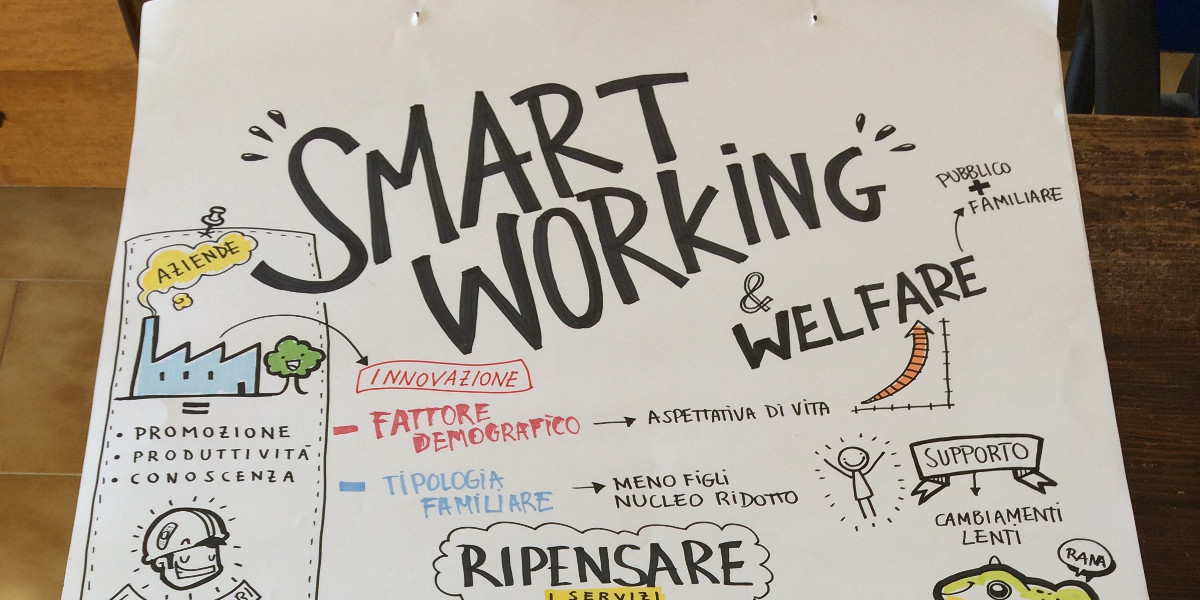 SMART
WORKING
& WELFARE
PUBBLICO
+
FAMILIARE
AZIENDE
=
• PROMOZIONE
• PRODUTTIVITÀ
• CONOSCENZA
INNOVAZIONE
- FATTORE
DEMOGRAFICO
ASPETTATIVA DI VITA
- TIPOLOGIA
FAMILIARE
MENO FIGLI
NUCLEO RIDOTTO
SUPPORTO
CAMBIAMENTI
LENTI
RANA
RIPENSARE
I SERVIZI